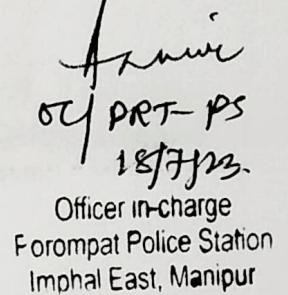 OC/PRT-PS
18/7/23.
Officer in-charge
Forompat Police Station
Imphal East, Manipur